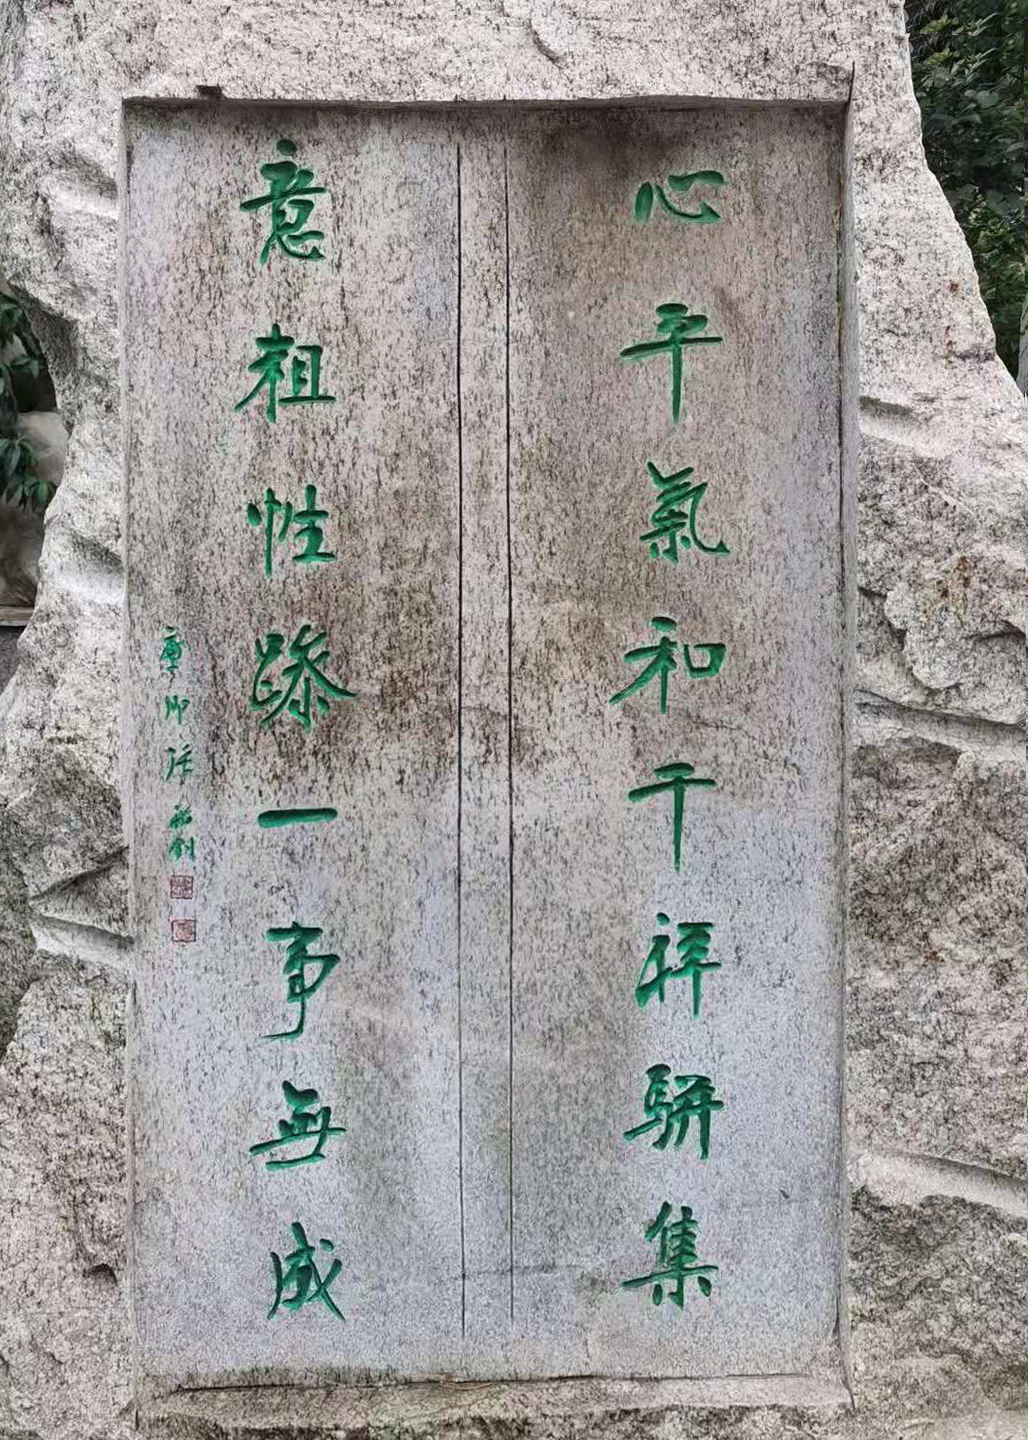 心平氣和千祥駢集
意粗性躁一事無成